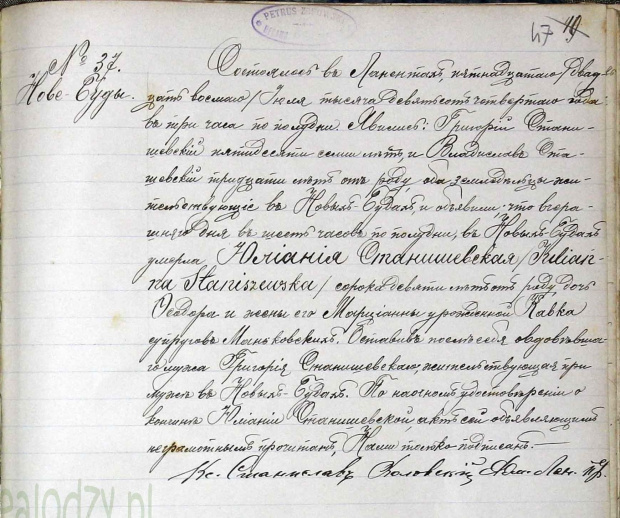 PETRUS
47 19
№ 37.
Нове-Буды.
Состоялось въ Ланентахъ, пятнадцатаго /двад-
цать восмаго/ Іюля тысяча девятьсотъ четвертаго года
въ три часа по полудни. Явились: Григорій Стани-
шевскій пятидесяти семи лѣтъ, и Владиславъ Ста-
шевскій тридцати лѣтъ отъ роду оба земледѣльцы жи-
тельствующіе въ Новыхъ-Будахъ, и объявили, что вчера-
шняго дня въ шесть часовъ по полудни, въ Новыхъ-Будахъ
умерла Юліанія Станишевская /Julian-
na Staniszewska/ сорока девяти лѣтъ отъ роду дочь
Ѳедора и жены его Марціанны урожденной Кавка
супруговъ Маньковскихъ. Оставивъ послѣ себя овдовѣвша-
го мужа Григорія Станишевскаго, жительствующая при
мужѣ въ Новыхъ-Будахъ. По наочномъ удостовѣреніи о
кончинѣ Юліаніи Станишевской актъ сей объявляющимъ
неграмотнымъ прочитанъ, Нами только подписанъ. —
Кс. Станиславъ
ealodzy.pl